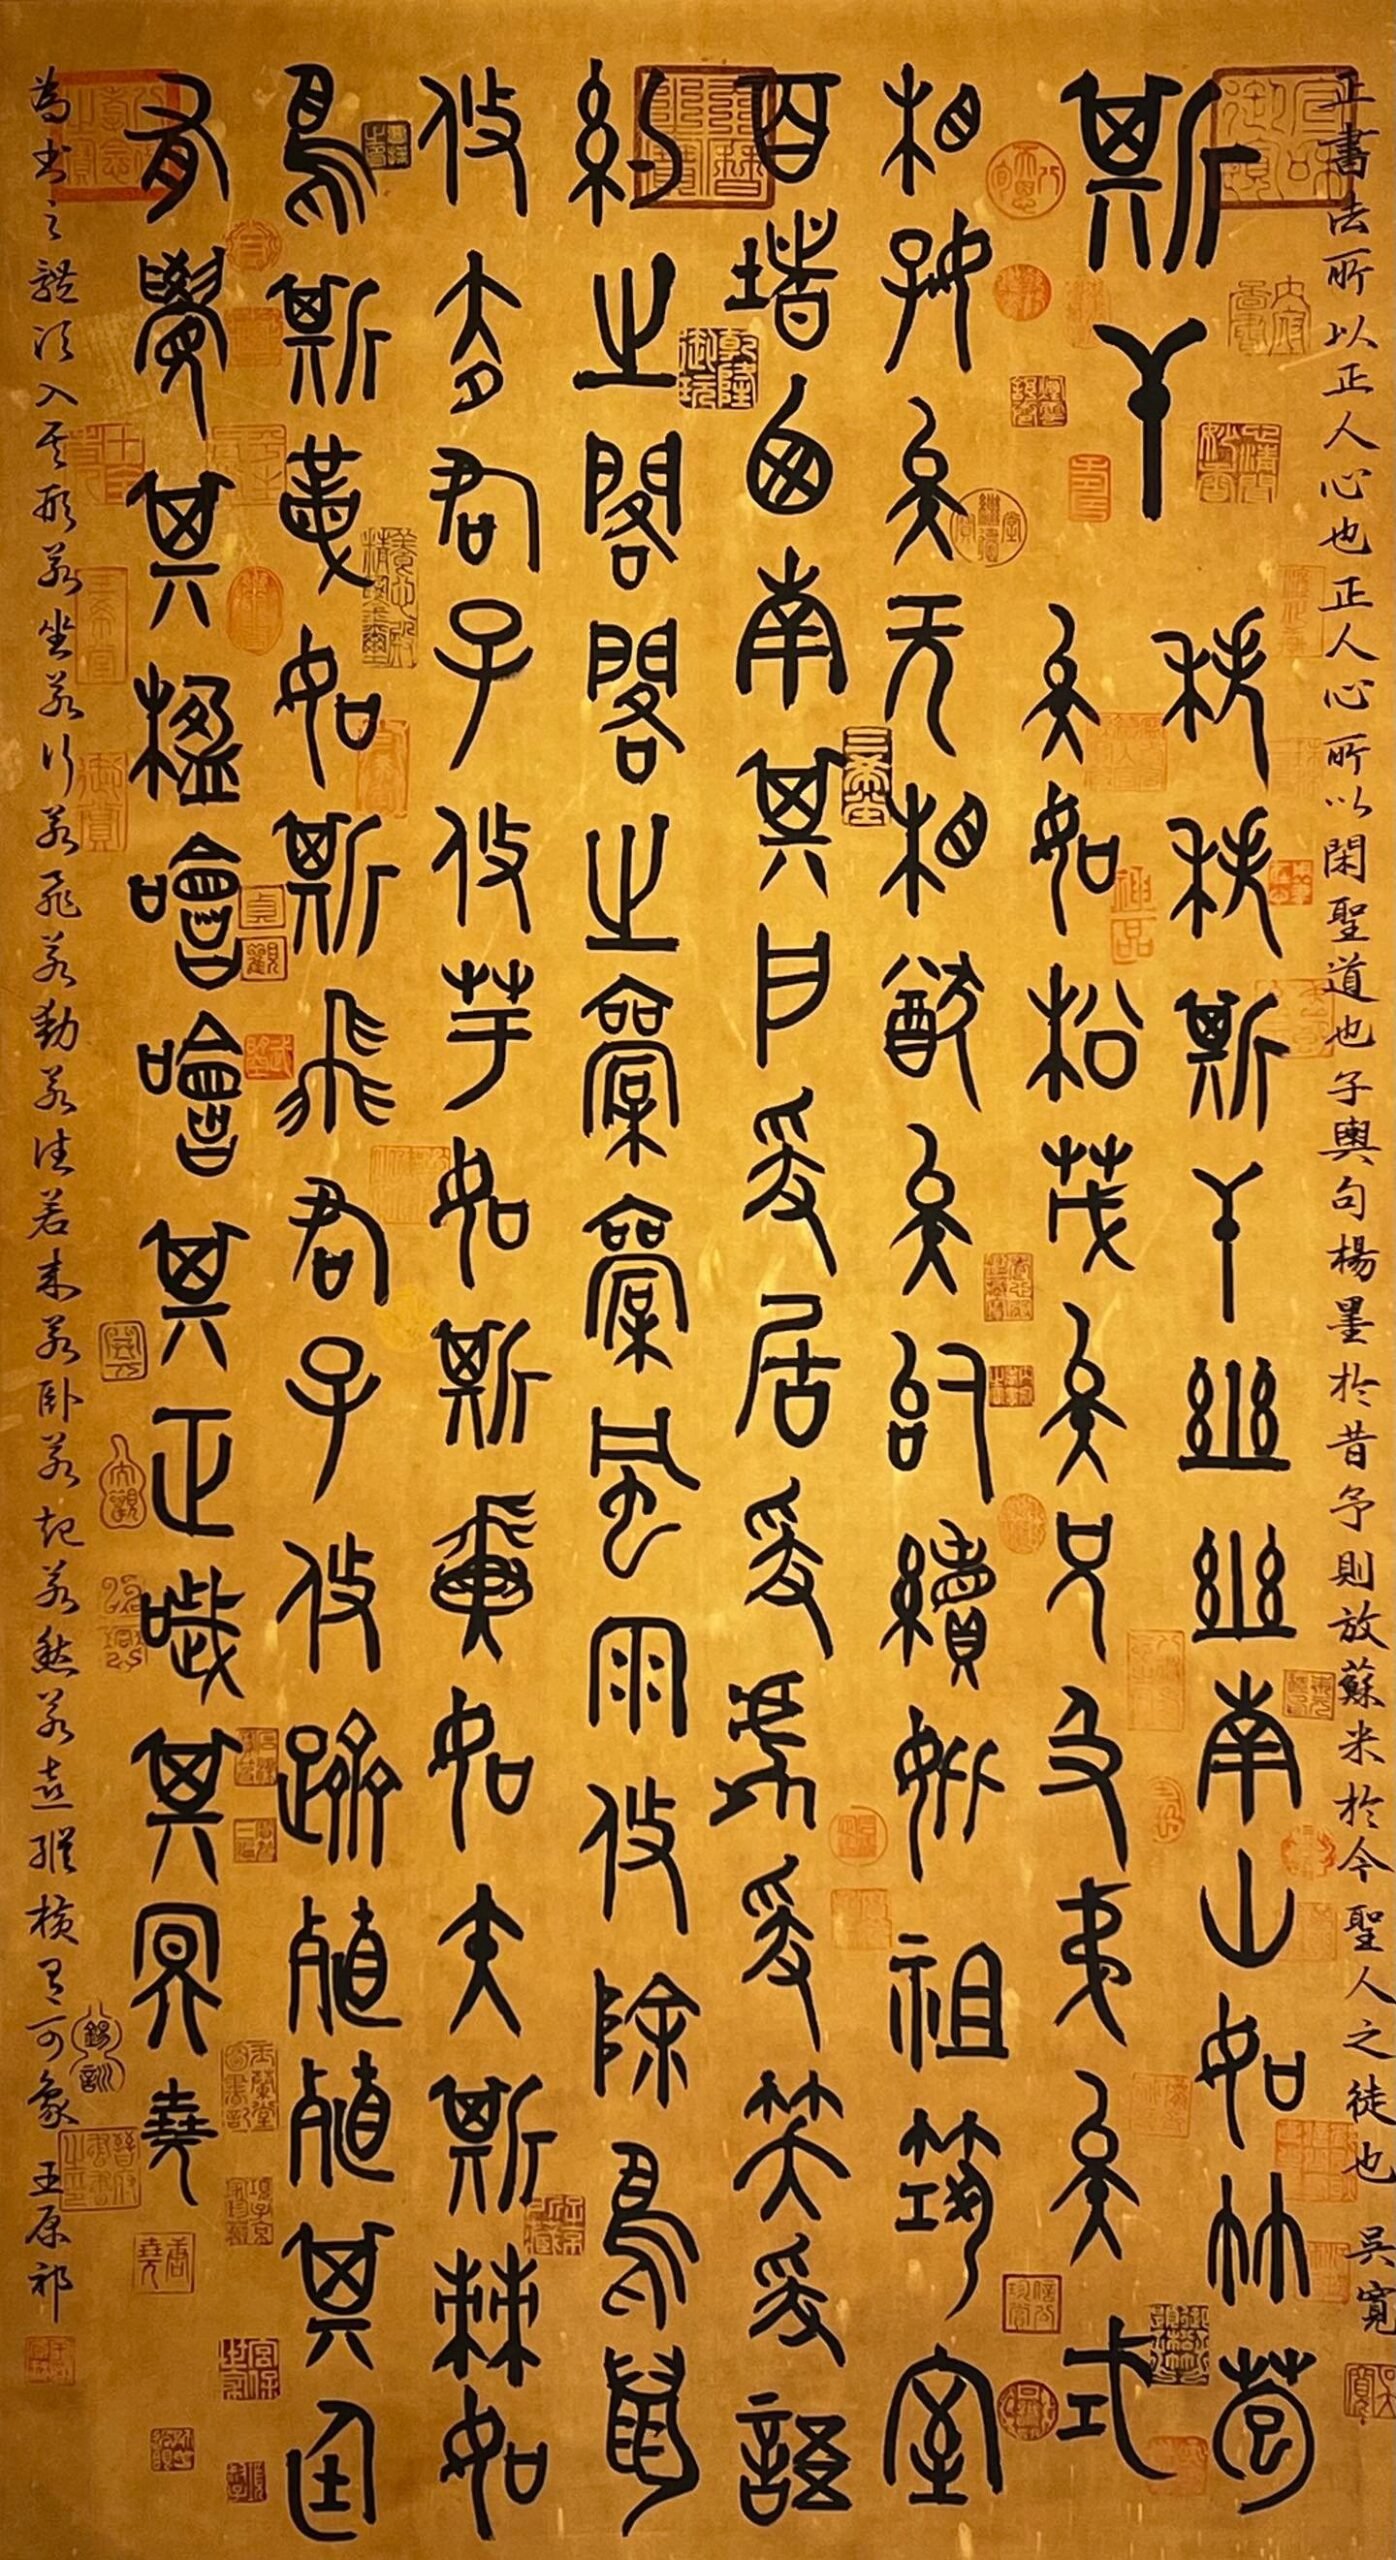 正書法所以正人心也正人心所以閑聖道也子輿句楊墨於昔予則放蘇米於今聖人之徒也 吳寬
斯干
秩秩斯干幽幽南山如竹苞
矣如松茂矣兄及弟矣式
相好矣无相猶矣似續妣祖築室
百堵西南其戶爰居爰處爰笑爰語
約之閣閣之橐橐風雨攸除鳥鼠
攸去君子攸芋如斯翼如矢斯棘如
鳥斯革如斯飛君子攸躋殖殖其庭
有覺其楹噲噲其正噦其冥堯
為書之體須入其形若坐若行若飛若動若往若來若臥若起若愁若喜縱橫有可象 王原祁
乾隆御玩
三希堂
貞觀